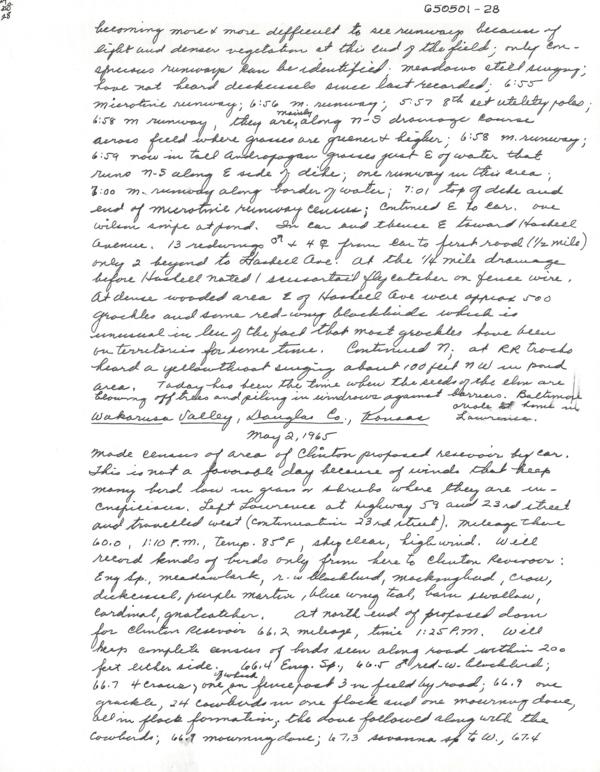 28
28
650501-28
becoming more & more difficult to see runways because of
light and denser vegetation at this end of the field; only con-
spicuous runways can be identified. meadows still singing;
have not heard dickcissels since last recorded; 6:55
microtine runway; 6:56 m. runway; 5:57 8th set utility poles;
6:58 m runway, they are mainly along n-s drainage course
across field where grasses are greener & higher; 6:58 m. runway;
6:59 now in tall Andropogon grasses just E of water that
runs n-s along E side of dike; one runway in this area;
7:00 m. runway along border of water; 7:01 top of dike and
end of microtine runway census; continued E to car. one
wilson snipe at pond. In car and thence E toward Haskell
Avenue. 13 redwings ♂ & 4 ♀ from car to first road (1/2 mile)
only 2 beyond to Haskell Ave. At the 1/4 mile drainage
before Haskell noted 1 scissortail flycatcher on fence wire.
At dense wooded area E of Haskell Ave were approx 500
grackles and some red-wing blackbirds which is
unusual in lieu of the fact that most grackles have been
on territories for some time. Continued N; at RR tracks
heard a yellowthroat singing about 100 feet NW in pond
area. Today has been the time when the seeds of the elm are
blowing off trees and piling in windrows against barriers. Baltimore
oriole at home in
Lawrence.
Wakarusa Valley, Douglas Co., Kansas
May 2, 1965
made census of area of Clinton proposed resevoir by car.
This is not a favorable day because of winds that keep
many bird low in grass or shrubs where they are in-
conspicious. Left Lawrence at highway 59 and 23rd street
and travelled west (continuation 23rd street). Mileage there
60.0, 1:10 P.M., temp. 85°F, sky clear, high wind. Will
record kinds of birds only from here to Clinton Resevoir:
Eng Sp., meadowlark, r-w blackbird, mockingbird, crow,
dickcissel, purple martin, blue wing teal, barn swallow,
cardinal, gnatcatcher. At north end of proposed dam
for Clinton Resevoir 66.2 mileage, time 1:25 P.M. Will
keep complete census of birds seen along road within 200
feet either side. 66.4 Eng. Sp., 66.5 ♂ red-w. blackbird;
66.7 4 crows, one of which on fencepost 3 in field by road; 66.9 one
grackle, 24 cowbirds in one flock and one mourning dove,
all in flock formation; the dove followed along with the
cowbirds; 66.9 mourning dove; 67.3 savanna sp to W., 67.4